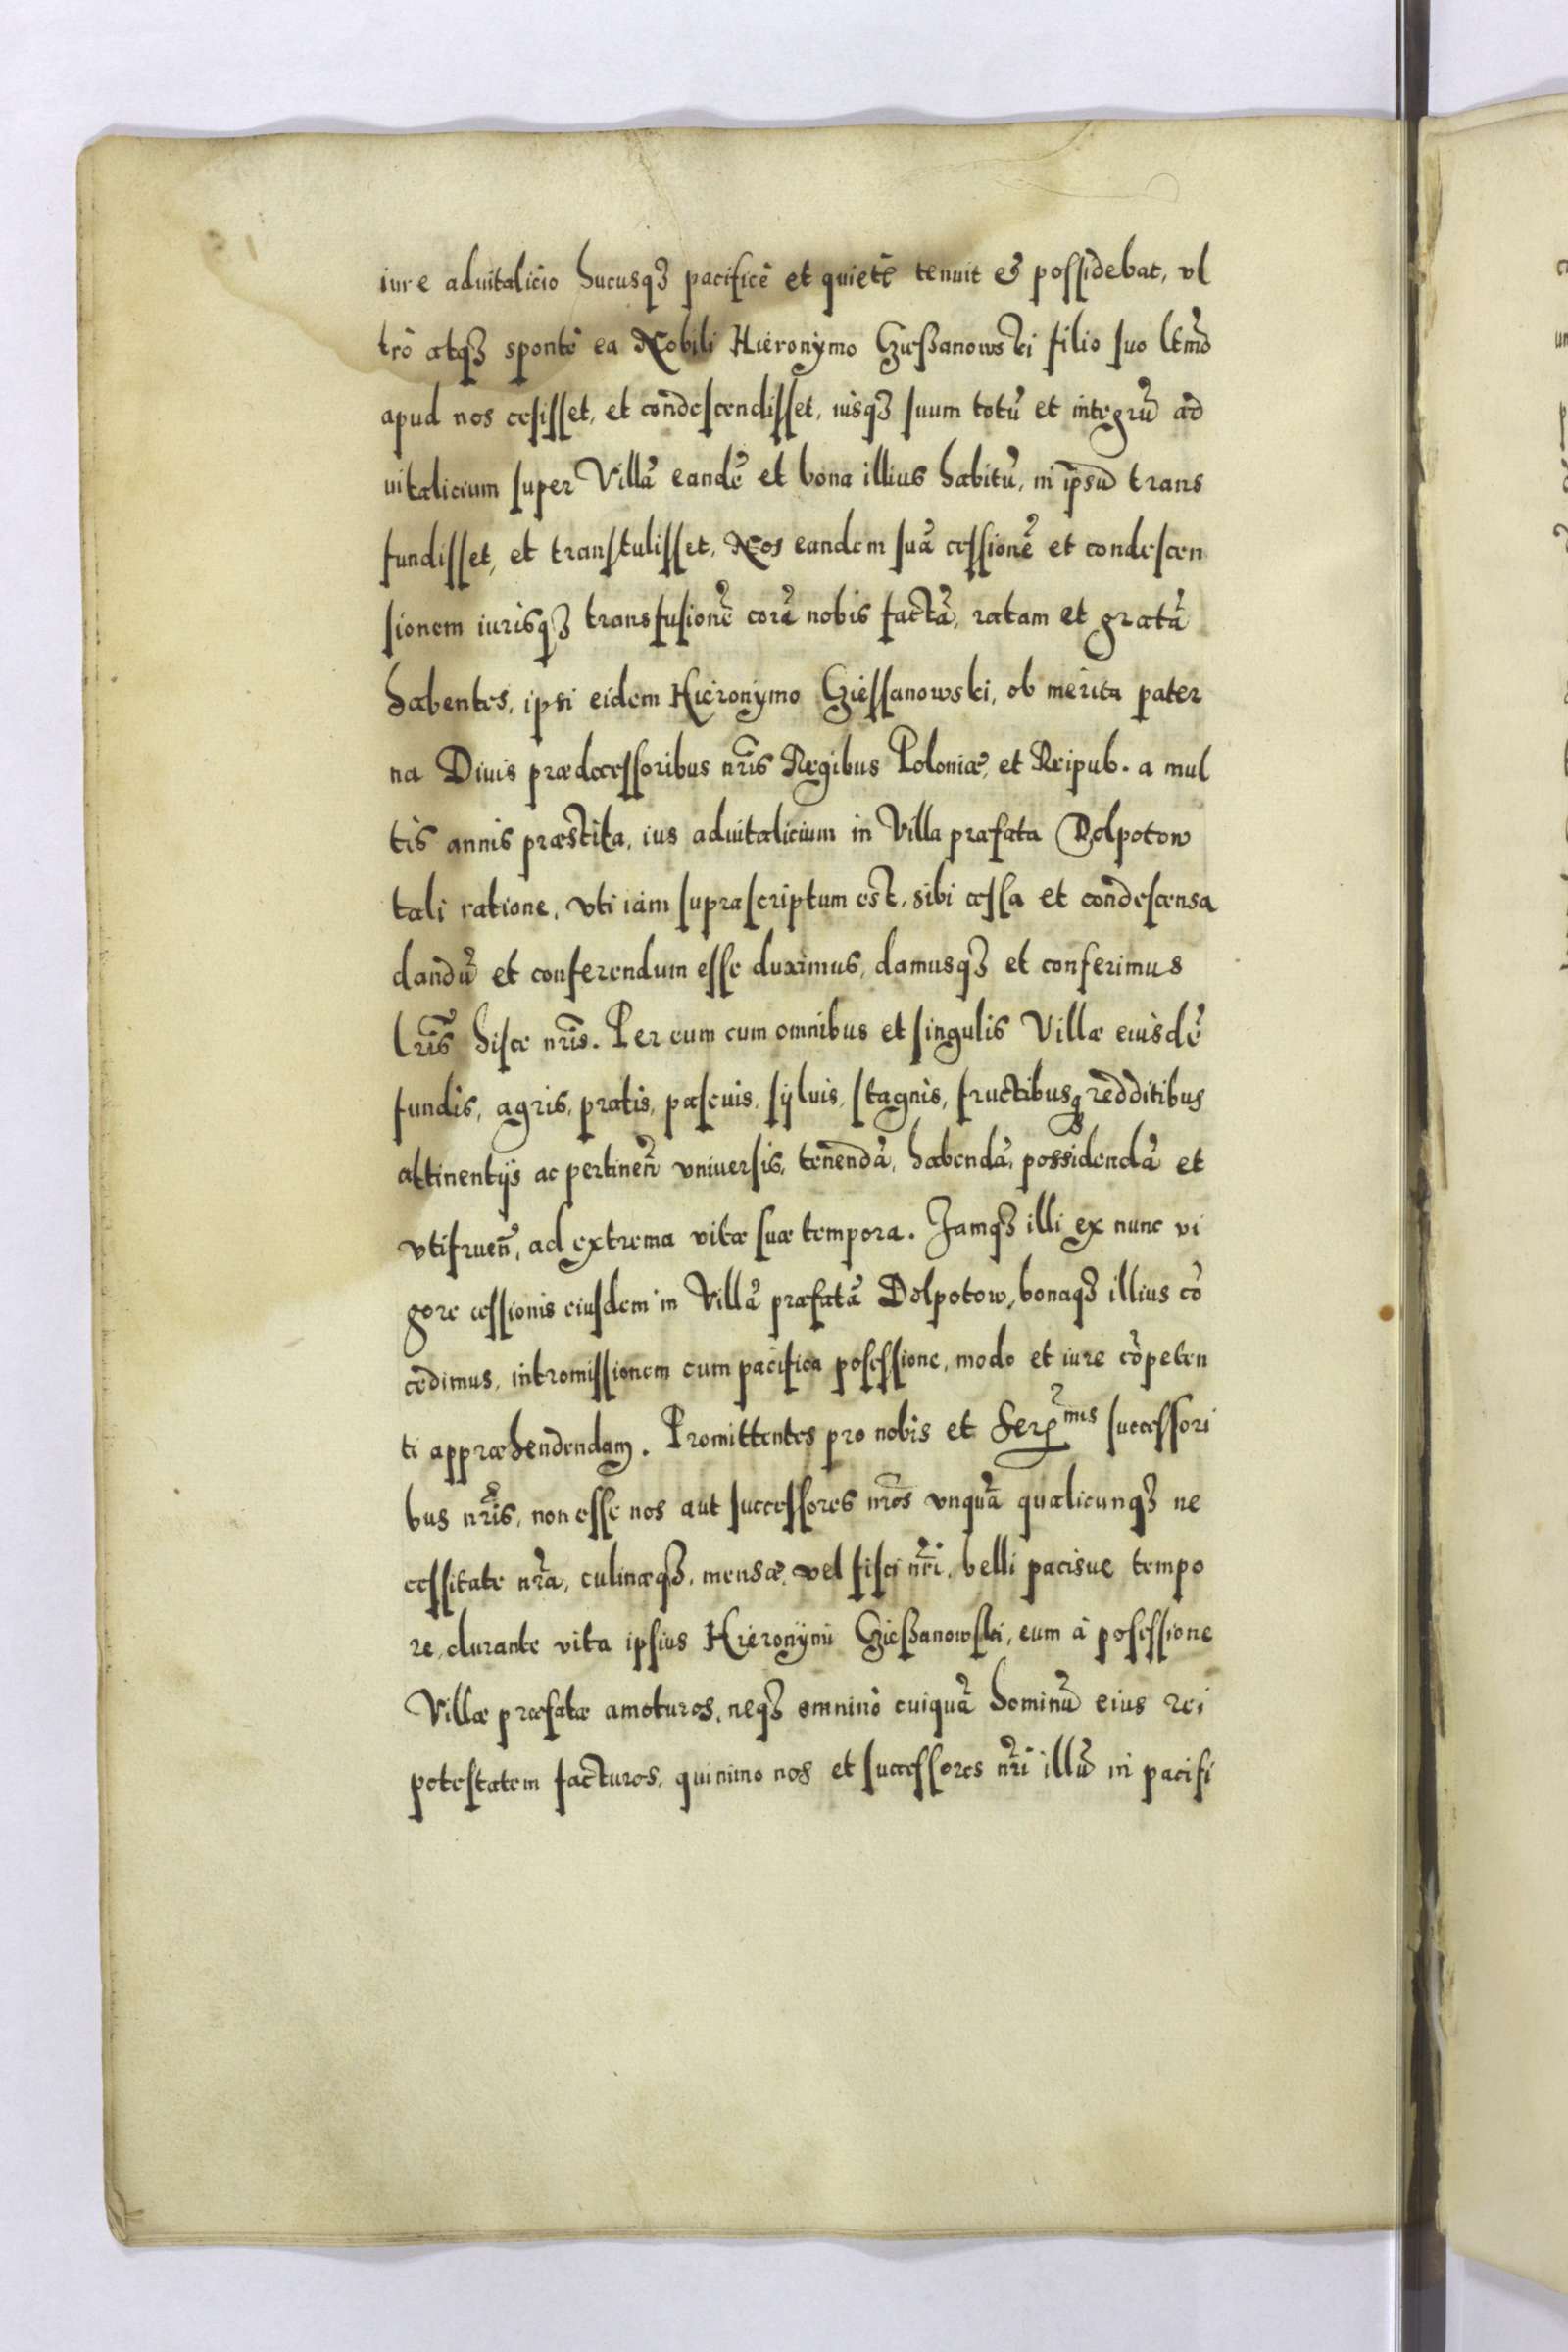 iure aduitalicio hucusqꝫ pacificè et quietè tenuit & possidebat, vl
trò atqꝫ spontè ea Nobili Hieronymo Gießanowski filio suo ltmõ
apud nos cesisset, et condescendisset, iusqꝫ suum totũ et integrũ ad
uitalicium super Villã eandẽ et bona illius habitũ, in ipsũ trans
fundisset, et transtulisset, Nos eandem suã cessionẽ et condescen
sionem iurisqꝫ transfusionẽ corã nobis factã, ratam et gratã
habentes, ipsi eidem Hieronymo Giessanowski, ob merita pater
na Diuis prædecessoribus nr̃is Regibus Poloniæ, et Reipub. a mul
tis annis præstita, ius aduitalicium in Villa præfata Dolpotow
tali ratione, vti iàm suprascriptum est, sibi cessa et condescensa
dandũ et conferendum esse duximus, damusqꝫ et conferimus
lr̃is hisce nr̃is. Per eum cum omnibus et singulis Villæ eiusdẽ
fundis, agris, pratis, pascuis, syluis, stagnis, fructibusq redditibus
attinentijs ac pertineñ vniuersis, tenendã, habendã, possidendã et
vtifrueñ, ad extrema vitæ suæ tempora. Jamqꝫ illi ex nunc vi
gore cessionis eiusdem in Villã præfatã Dolpotow, bonaqꝫ illius cõ
cedimus, intromissionem cum pacifica posessione, modo et iure cõpeten
ti appræhendendam. Promittentes pro nobis et Ser mis successori
bus nr̃is, non esse nos aut successores nr̃os vnquã qualicunqꝫ ne
cessitate nr̃a, culinæqꝫ, mensæ, vel fisci nr̃i, belli pacisue tempo
re, durante vita ipsius Hieronymi Gießanowski, eum à posessione
Villæ præfatæ amoturos, neqꝫ omninò cuiquã hominũ eius rei
potestatem facturos, quinimo nos et successores nr̃i illũ in pacifi